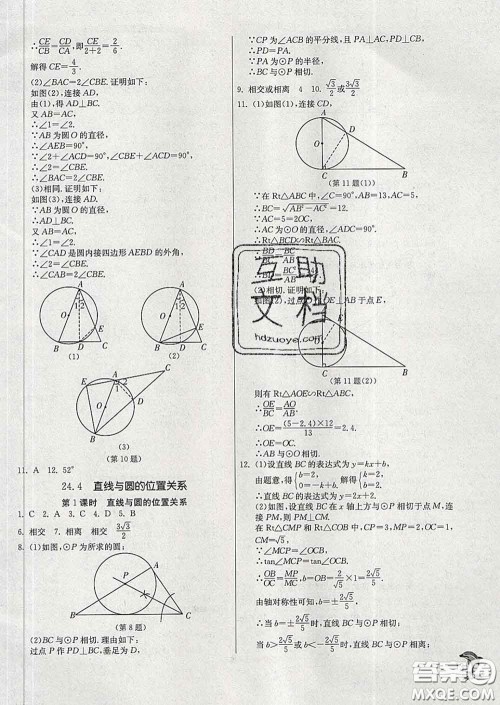 ∴CE/CD=CD/CA,即CE/2+2=2/6.
解得CE=4/3.
(2)∠BAC=2∠CBE.证明如下:
如图(2),连接AD.
由(1),得AD⊥BC.
又AB=AC,
∴∠1=∠2.
∵AB为⊙O的直径,
∴∠AEB=90°.
∵∠2+∠ACD=90°,∠CBE+∠ACD=90°,
∴∠2=∠CBE.
∴∠BAC=2∠CBE.
(3)相同.证明如下:
如图(3),连接AD.
∵AB为⊙O的直径,
∴AD⊥BC.
又AB=AC,
∴∠1=∠2.
∵∠CAD是圆内接四边形AEBD的外角,
∴∠2=∠CBE.
∴∠BAC=2∠CBE.
(1)
(2)
(3)
(第10题)
11. A 12. 52°
24.4 直线与圆的位置关系
第1课时 直线与圆的位置关系
1. C 2. A 3. C 4. D 5. B
6. 相交 7. 相离 相交 3√3/2
8. (1)如图,⊙P为所求的圆:
(第8题)
(2)BC与⊙P相切.理由如下:
过点P作PD⊥BC,垂足为D,
∵CP为∠ACB的平分线,且PA⊥AC,PD⊥CB,
∴PD=PA.
∵PA为⊙P的半径,
∴BC与⊙P相切.
9. 相交或相离 4 10. √3/2或3√3/2
11. (1)如图(1),连接CD,
(第11题(1))
∵在Rt△ABC中,∠C=90°,AB=13,AC=5,
∴BC=√AB²−AC²=12.
∵AC=5=2OC,
∵AC为⊙O的直径,∴∠ADC=90°.
∴Rt△BCD∽Rt△BAC.
(2)相切.证明如下:
(第11题(2))
则有Rt△AOE∽Rt△ABC.
∴OE/BC=AO/AB.
∴OE=(5−2.4)×12/13=2.4.
∴OE=OC.
∴AB与⊙O相切.
12. (1)设直线BC的表达式为y=kx+b,
(2)如图,设直线BC在x轴上方与⊙P相切于点M,连接PM,则PM⊥CM.
∴∠MCP=∠OCB,
tan∠MCP=tan∠OCB.
∴OB/OC=MP/MC,b=OB=2√5/5×1=2√5/5.
由轴对称性可知,b=±2√5/5.
∴当b=±2√5/5时,直线BC与⊙P相切;
当b>2√5/5或b<−2√5/5时,直线BC与⊙P相离;
互助
文档
hdzuoye.com
答案圈
MXQE.COM